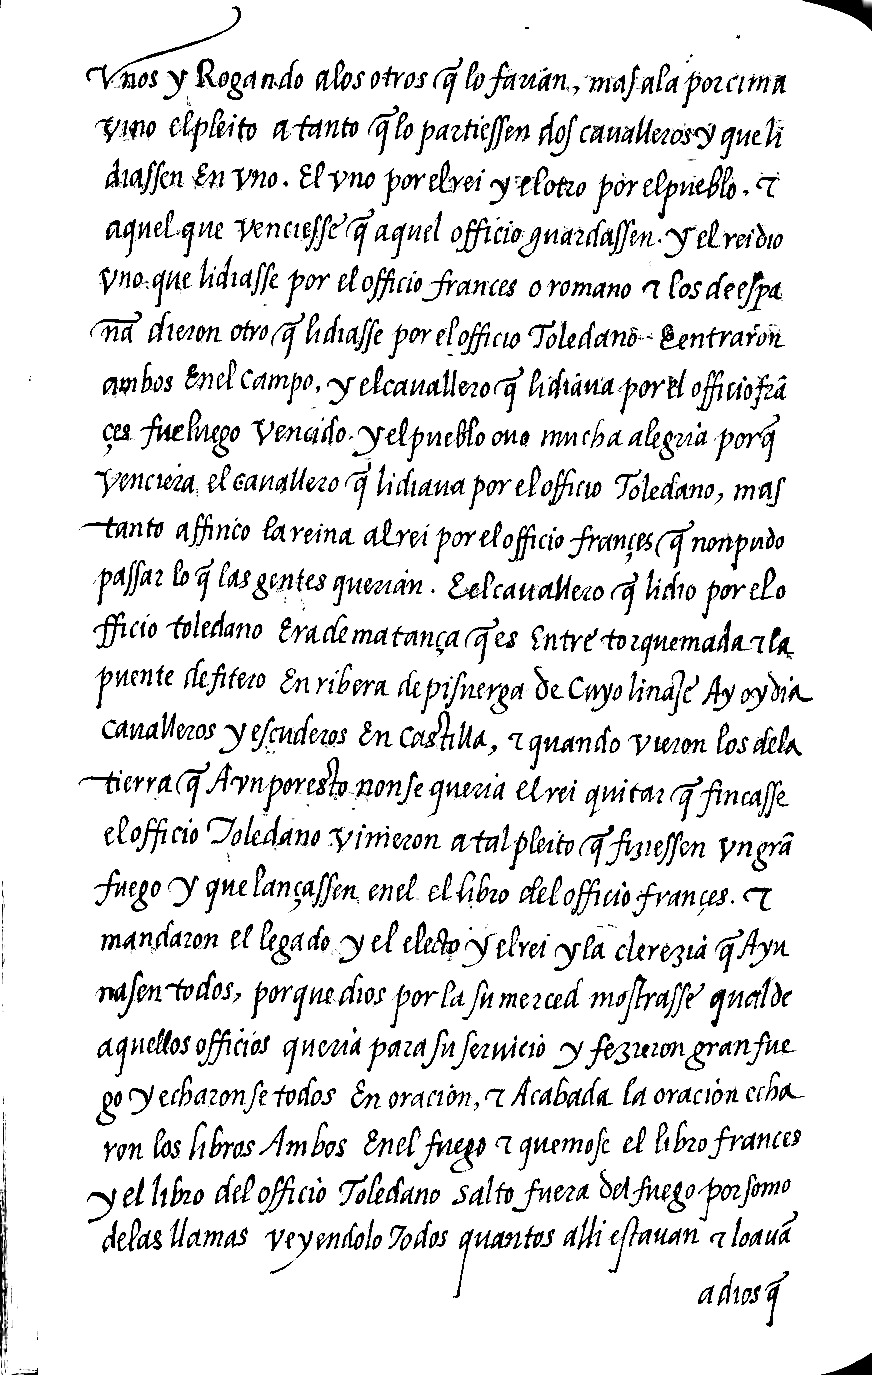 Vnos y Rogando alos otros q̃ lo farian, mas ala por cima
vino el pleito a tanto q̃ lo partiessen dos caualleros y que li
diassen En vno. El vno por el rei y el otro por el pueblo. τ
aquel que venciesse q̃ aquel officio guardassen. y el rei dio
vno que lidiasse por el officio frances o romano τ los de espa
ña dieron otro q̃ lidiasse por el officio Toledano E entraron
ambos Enel campo, y el cauallero q̃ lidiaua por el officio frã
çes fue luego Vencido. y el pueblo ouo mucha alegria porq̃
venciera el cauallero q̃ lidiaua por el officio Toledano, mas
tanto affinco la reina al rei por el officio françes q̃ non pudo
passar lo q̃ las gentes querian. E el cauallero q̃ lidio por el o
fficio toledano Era de matança q̃ es Entre torquemada τ la
puente de fitero En ribera de pisuerga de Cuyo linaje Ay oy dia
caualleros y escuderos En Castilla, τ quando vieron los dela
tierra q̃ Avn por esto non se queria el rei quitar q̃ fincasse
el officio Toledano vinieron a tal pleito q̃ fiziessen vn grã
fuego y que lançassen enel el libro del officio françes. τ
mandaron el legado y el electo y el rei y la clerezia q̃ Ayu
nasen todos, porque dios por la su merced mostrasse qual de
aquellos officios queria para su seruicio y fezieron gran fue
go y echaron se todos En oracion, τ Acabada la oracion echa
ron los libros Ambos Enel fuego τ quemose el libro frances
y el libro del officio Toledano salto fuera del fuego por somo
delas llamas veyendolo Todos quantos alli estauan τ loauã
a dios q̃